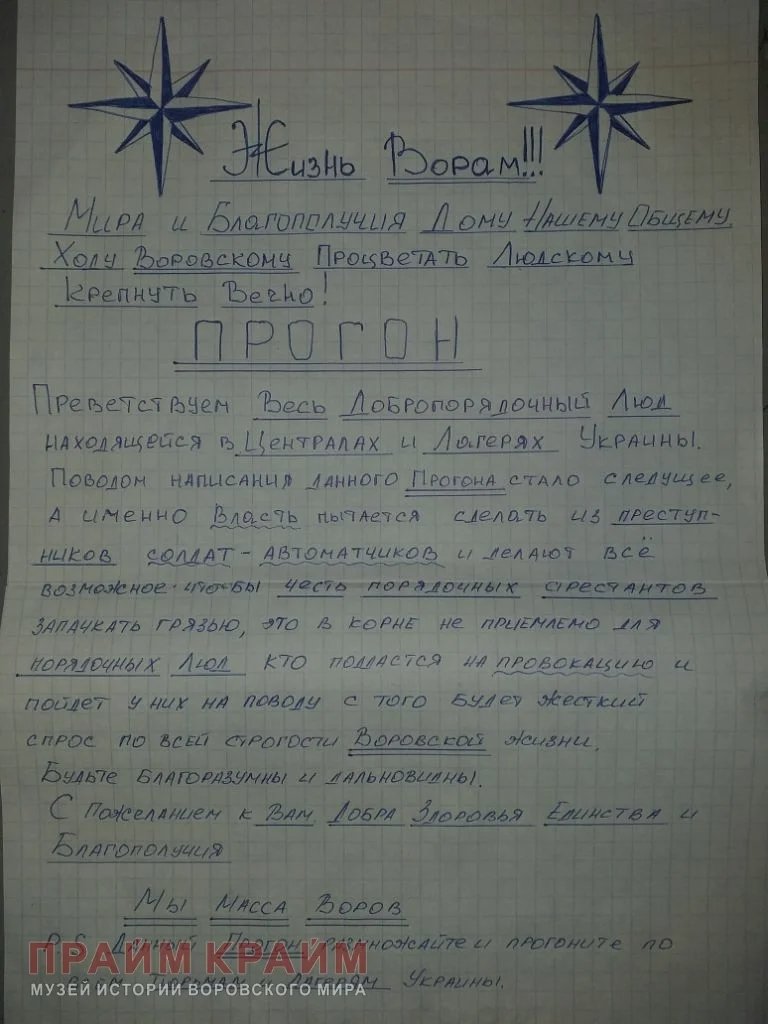 Жизнь Ворам!!!
Мира и Благополучия Дому Нашему Общему
Ходу Воровскому Процветать Людскому
Крепнуть Вечно!
ПРОГОН
Преветствуем Весь Добропорядочный Люд
находящейся в Централах и Лагерях Украины.
Поводом написания данного Прогона стало следущее,
а именно Власть пытается сделать из преступ-
ников солдат-автоматчиков и делают всё
возможное чтобы честь порядочных арестантов
запачкать грязью, это в корне не приемлемо для
порядочных Люд кто поддастся на провокацию и
пойдет у них на поводу с того будет жесткий
спрос по всей строгости Воровской жизни.
Будьте благоразумны и дальновидны.
С пожеланием к Вам Добра Здоровья Единства и
Благополучия
Мы Масса Воров
P.S. Данный Прогон размножайте и прогоните по
всем Тюрьмам и Лагерям Украины.
ПРАЙМ КРАЙМ
МУЗЕЙ ИСТОРИИ ВОРОВСКОГО МИРА